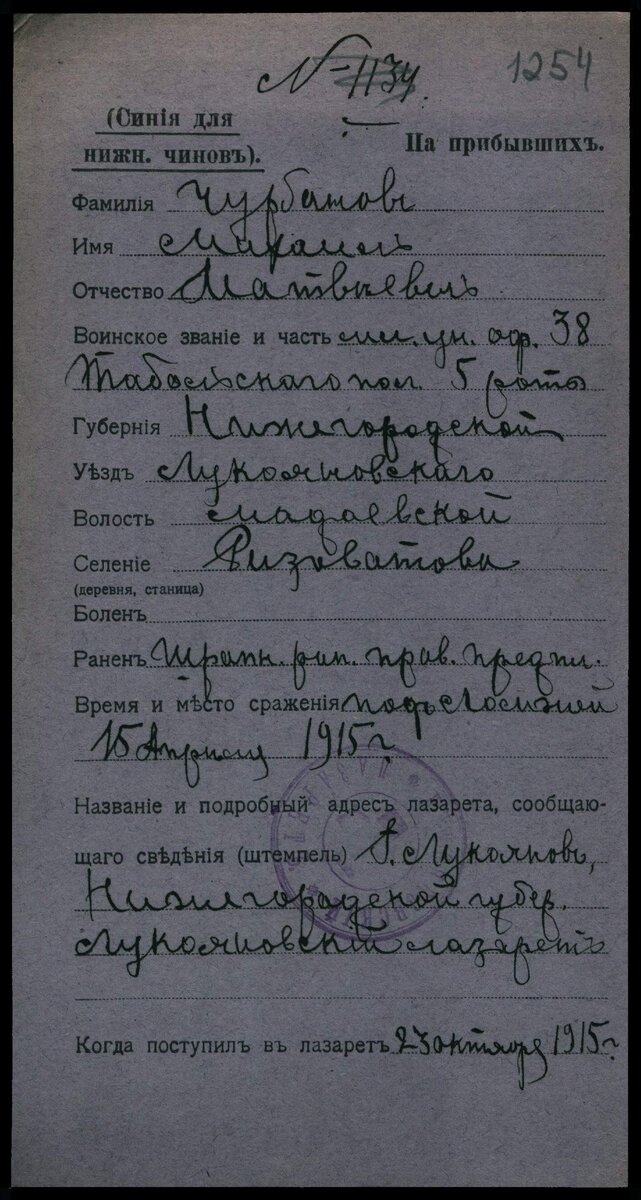 № 1134.
1254
(Синія для
нижн. чиновъ).
На прибывшихъ.
Фамилія Чурбатовъ
Имя Михаилъ
Отчество Матвѣевичъ
Воинское званіе и часть мл. ун. оф. 38
Тобольскаго пол. 5 роты
Губернія Нижегородской
Уѣздъ Лукояновскаго
Волость Мадаевской
Селеніе Ризоватова
(деревня, станица)
Боленъ
Раненъ Шрапн. рап. прав. предпл.
Время и мѣсто сраженія подъ
15 Апрѣля 1915 г
Названіе и подробный адресъ лазарета, сообщаю-
щаго свѣдѣнія (штемпель) Г. Лукояновъ,
Нижегородской губер.
Лукояновскій лазаретъ
Когда поступилъ въ лазаретъ 23 октября 1915 г